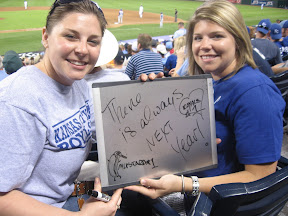 There
is always
NEXT
Year!
KANSAS CITY
ROYALS